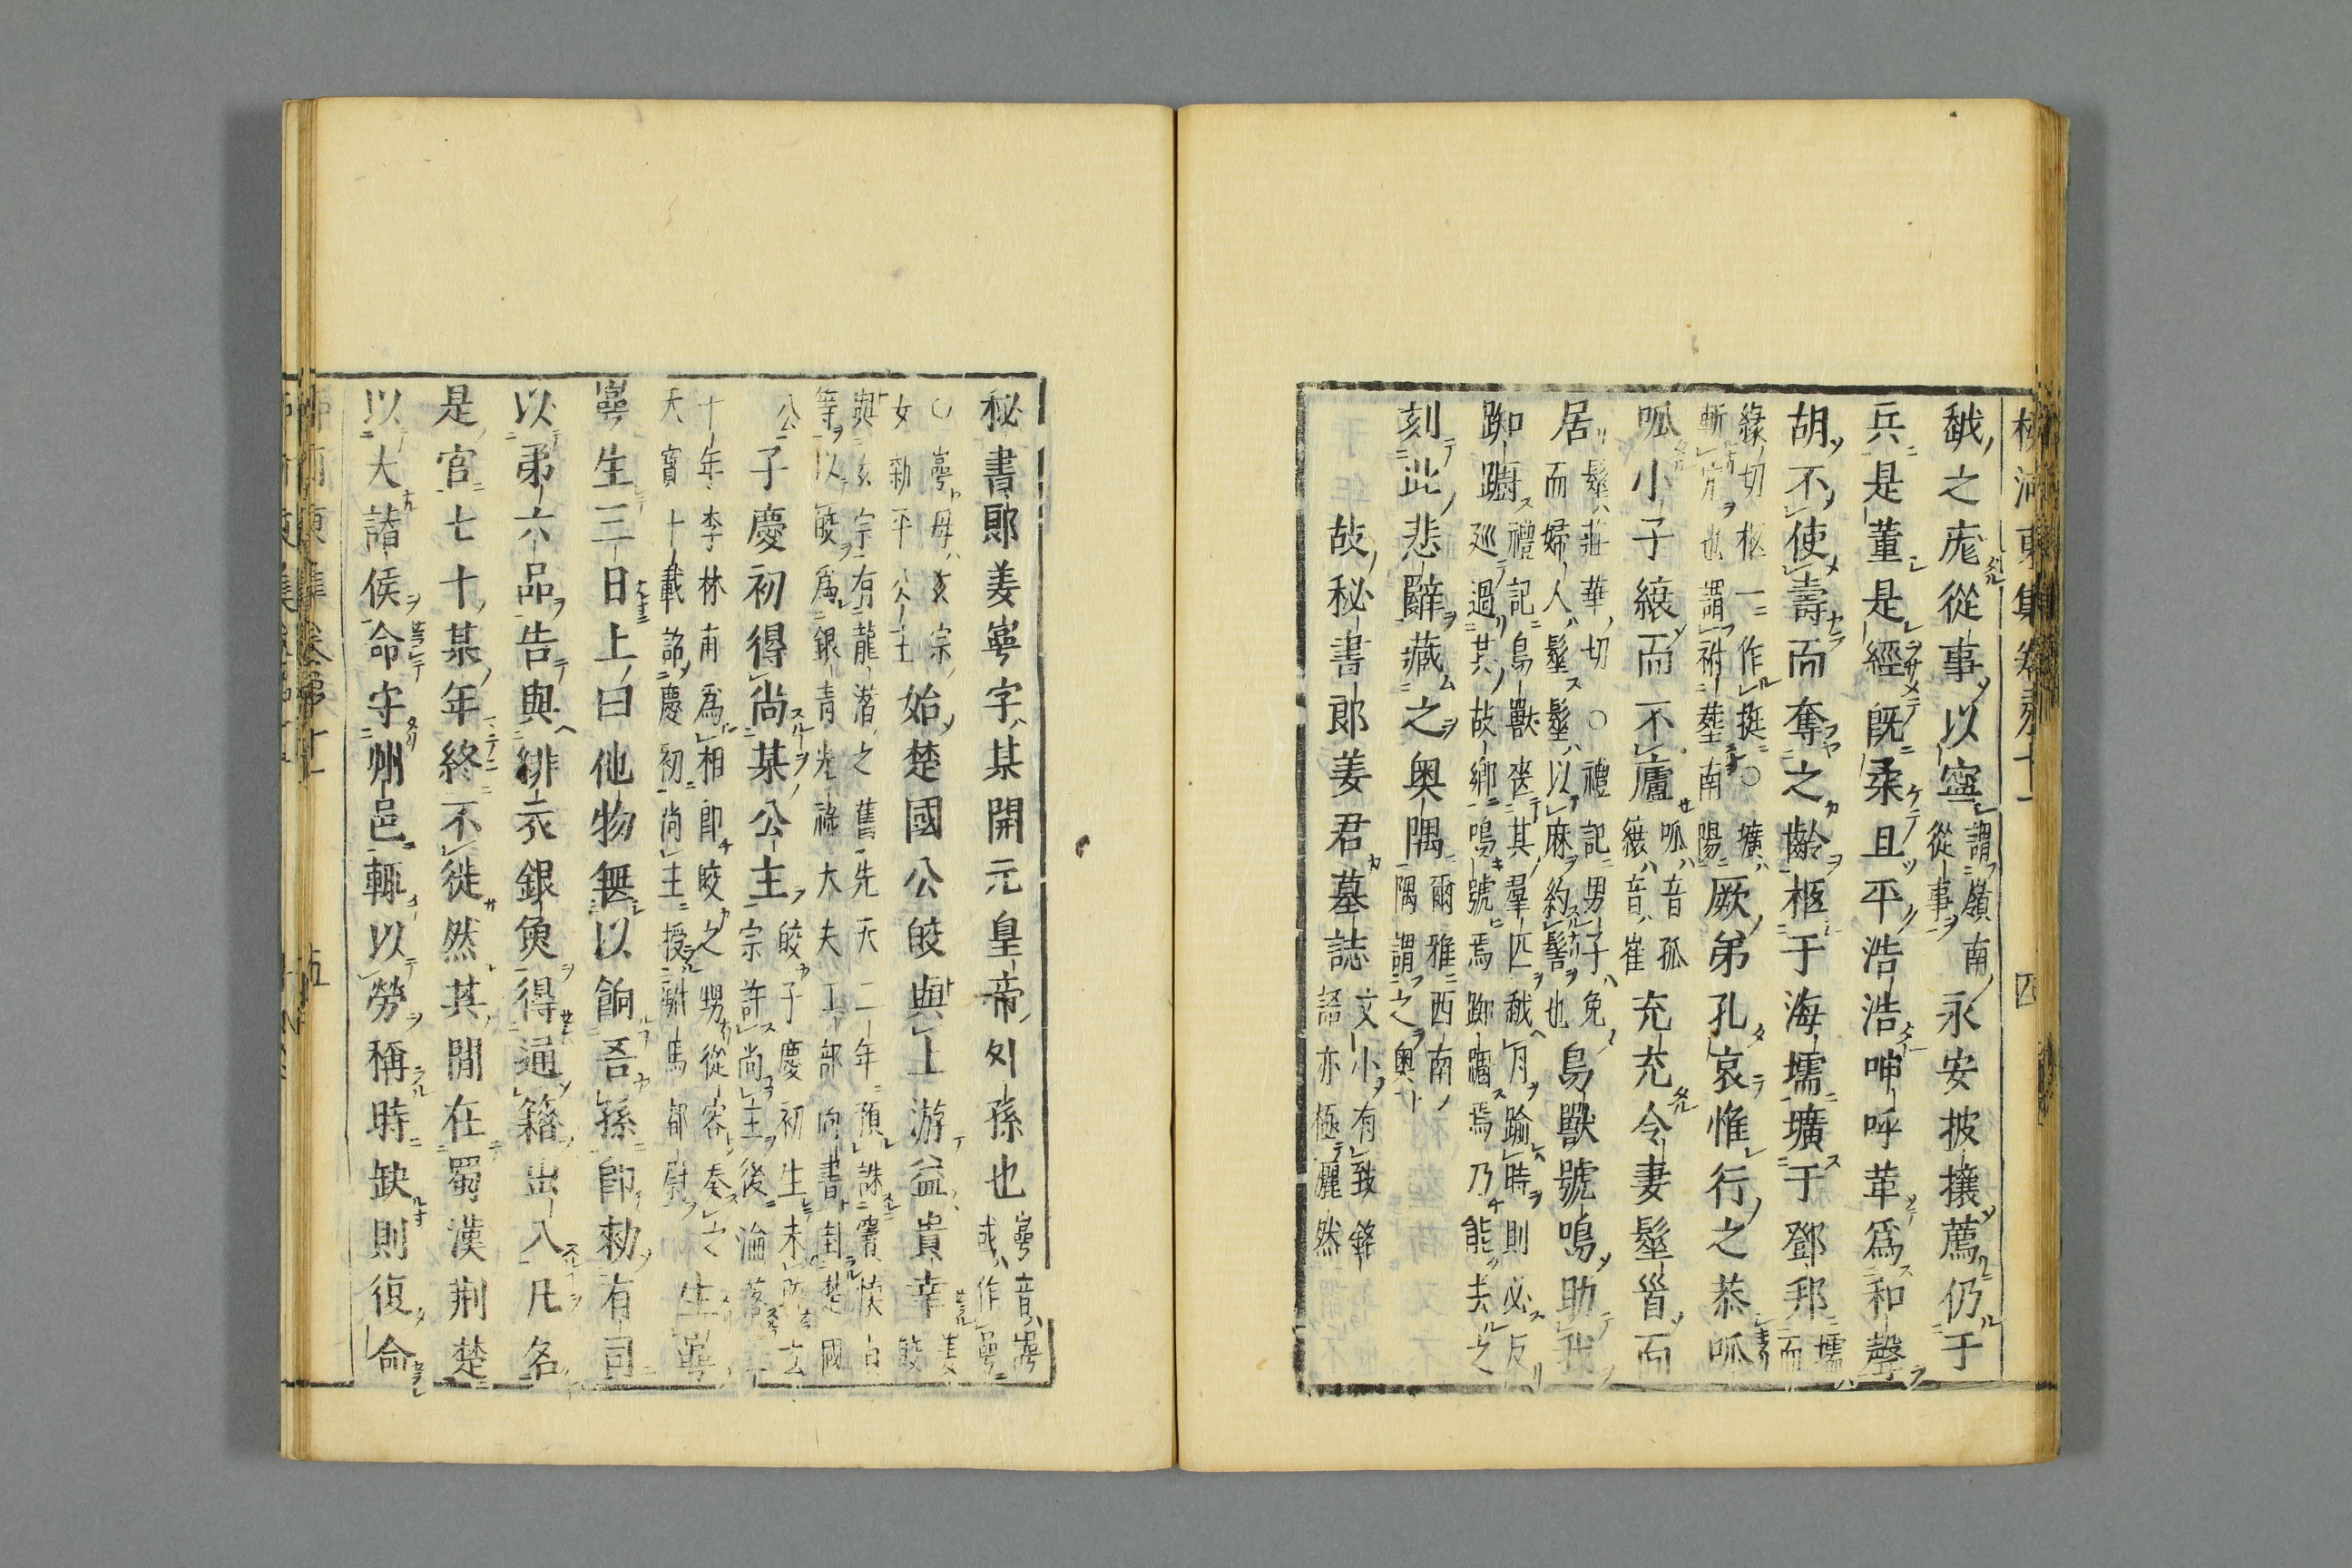 柳河東集卷第十一 四
戡之庬從事以寧謂嶺南從事永安披攘薦仍于
兵是董是經既柔且平浩浩呻呼革爲和聲
胡不使壽而奪之齡柩于海壖壙于鄧邦壖而
緣切柩一作挺○壙
塹穴也謂祔葬南陽厥弟孔哀惟行之恭呱
呱小子縗而不廬呱音孤縗音崔充充令妻髽首而
居髽莊華切○禮記男子免而婦人髽髽以麻約髻也鳥獸號鳴助我
踟躕禮記鳥獸喪其羣匹越月踰時則必反巡過其故鄉鳴號焉踟躕焉乃能去之
刻此悲辭藏之奥隅爾雅西南隅謂之奥
故秘書郎姜君墓誌文小有致銘語亦極灑然
秘書郎姜崿字某開元皇帝外孫也崿音咢或作㟧
○崿母玄宗女新平公主始楚國公皎與上游益貴幸皎姜
與玄宗有龍潛之舊先天二年預誅竇懷貞
等以皎爲銀青光祿大夫工部尚書封楚國
公子慶初得尚某公主皎子慶初生未
宗許尚主後淪落
十年李林甫爲相即皎之甥從容奏之
天寶十載詔慶初尚主授駙馬都尉生崿
崿生三日上曰他物無以餉吾孫即勑有司
以弟六品告與緋衣銀魚得通籍出入凡名
是官七十某年終不徙然其閒在蜀漢荆楚
以大諸侯命守州邑輒以勞稱時缺則復命
柳河東集卷第十一 五